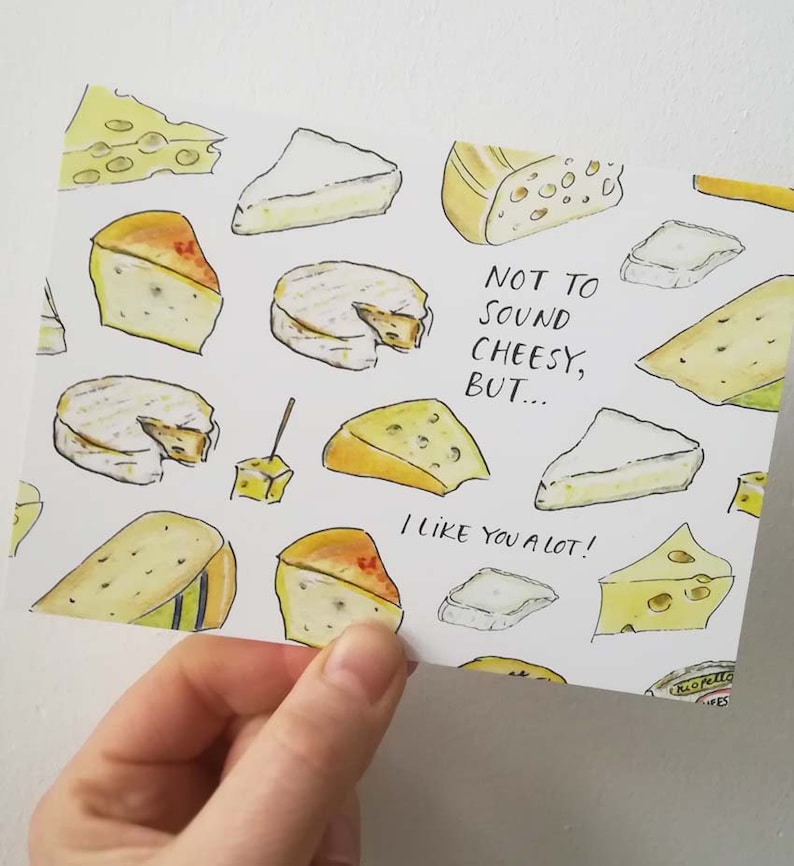 NOT TO
SOUND
CHEESY,
BUT...
I LIKE YOU A LOT!